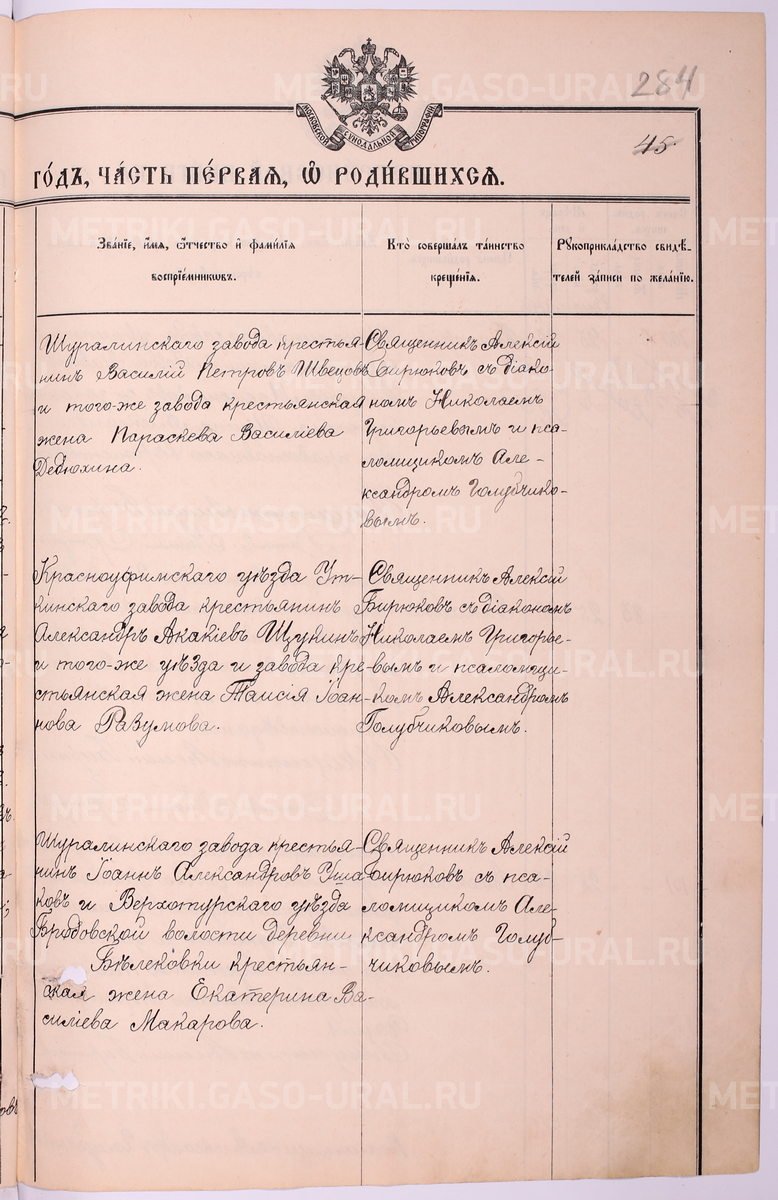 284
45
МОСКОВСКОЙ СѴНОДАЛЬНОЙ ТИПОГРАФІИ
ГО́ДЪ, ЧА́СТЬ ПЕ́РВАЯ, Ѽ РОДИ́ВШИХСЯ.
Зва́нїе, и҆́мя, ѻ҆́тчество и҆ фами́лїя
воспрїе́мникωвъ.
Кто̀ соверша́лъ та́инство
креще́нїя.
Рꙋкоприкла́дство свидѣ́-
телей за́писи по жела́нїю.
Шуралинскаго завода крестья-
нинъ Василій Петровъ Швецовъ
и того-же завода крестьянская
жена Параскева Василіева
Дедюхина.
Священникъ Алексій
Бирюковъ съ діако-
номъ Николаемъ
Григорьевымъ и пса-
ломщикомъ Але-
ксандромъ Голубчико-
вымъ.
Красноуфимскаго уѣзда Ут-
кинскаго завода крестьянинъ
Александръ Акакіевъ Щукинъ
и того-же уѣзда и завода кре-
стьянская жена Таисія Іоан-
нова Разумова.
Священникъ Алексій
Бирюковъ съ діакономъ
Николаемъ Григорье-
вымъ и псаломщи-
комъ Александромъ
Голубчиковымъ.
Шуралинскаго завода крестья-
нинъ Іоаннъ Александровъ Уша-
ковъ и Верхотурскаго уѣзда
Бродовской волости деревни
Бѣлековки крестьян-
ская жена Екатерина Ва-
силіева Макарова.
Священникъ Алексій
Бирюковъ съ пса-
ломщикомъ Але-
ксандромъ Голуб-
чиковымъ.
METRIKI.GASO-URAL.RU